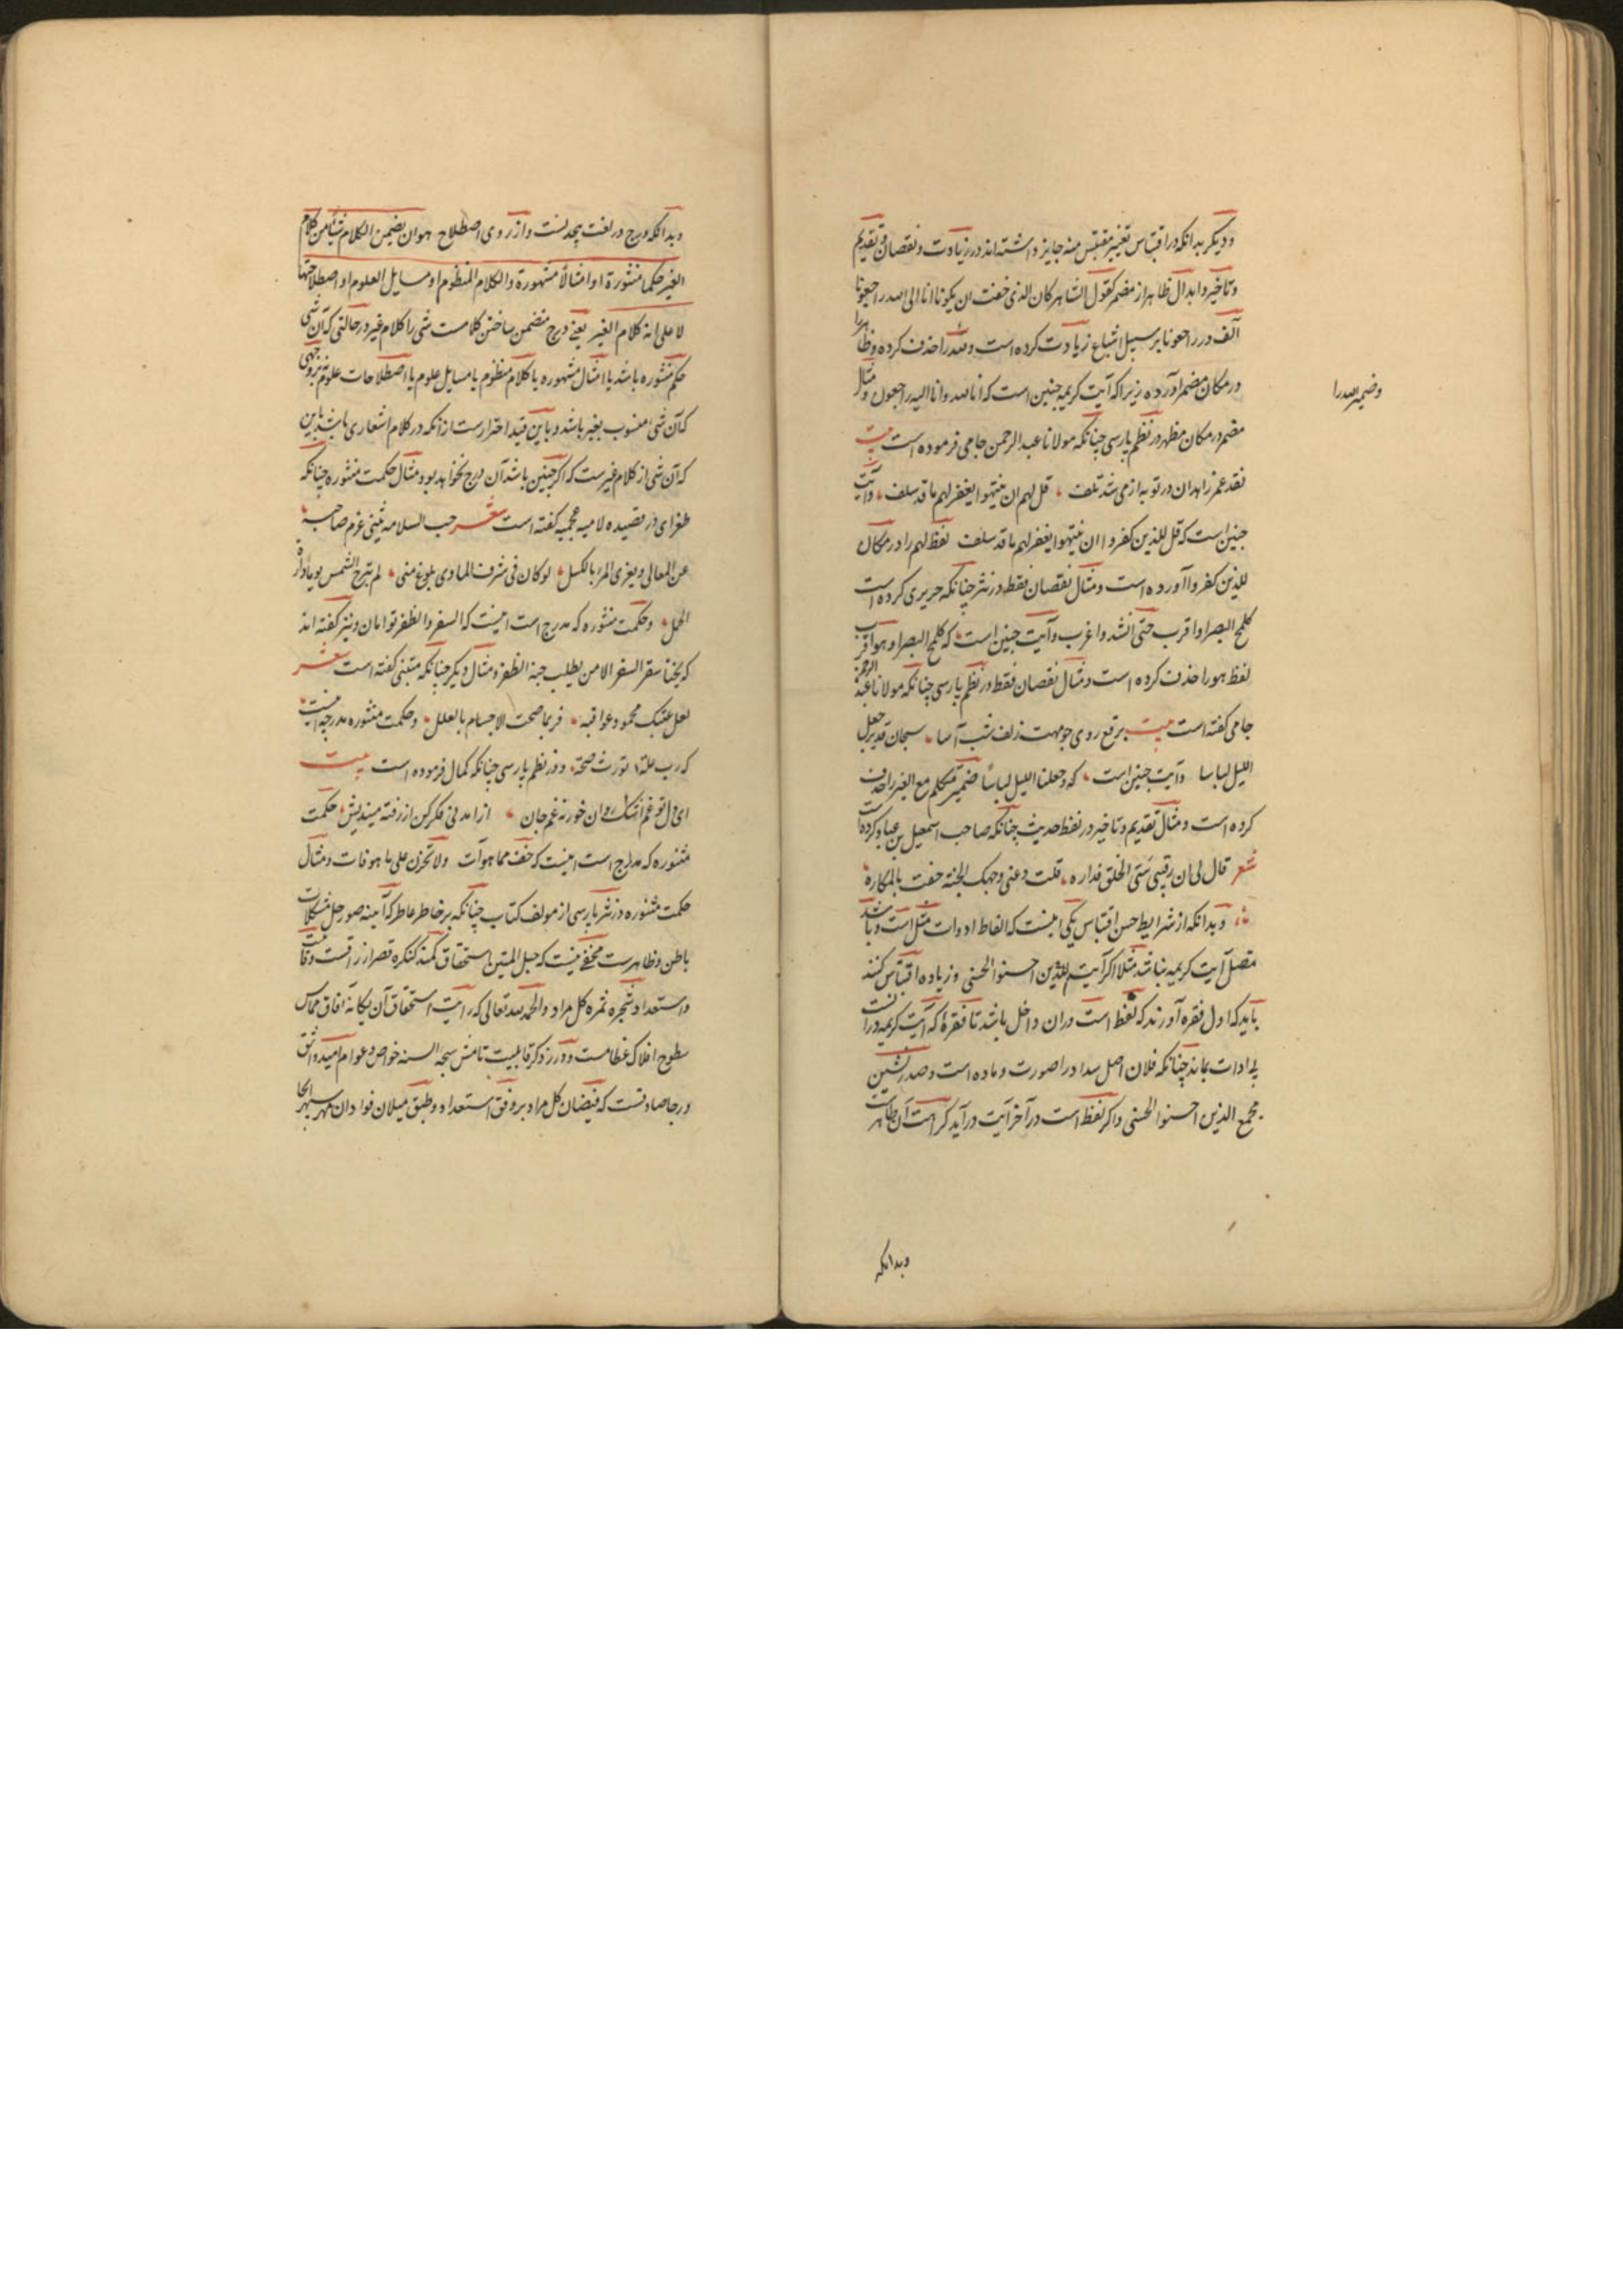 و دیگر بدانکه در اقتباس تغییر مقتبس منه جایز داشته اند در زیادت و نقصان و تقدیم
و تاخیر و ابدال ظاهر از مضمر کقول الشاعر کان الذی خفت ان یکونا انا الی الله راجعونا
الف در راجعونا بر سبیل اشباع زیادت کرده است و لله را حذف کرده و ظاهر را
وضمیر لله را
در مکان مضمر آورده زیرا که آیت کریمه چنین است که انا لله وانا الیه راجعون و مثال
مضمر در مکان مظهر در نظم پارسی چنانکه مولانا عبد الرحمن جامی فرموده است بیت
نقد عمر زاهدان در توبه از می شد تلف قل لهم ان ینتهوا یغفر لهم ما قد سلف و آیت
چنین است که قل للذین کفروا ان ینتهوا یغفر لهم ما قد سلف لفظ لهم را در مکان
للذین کفروا آورده است و مثال نقصان فقط در نثر چنانکه حریری کرده است
کلمح البصر او اقرب حتی انشد واغرب و آیت چنین است که کلمح البصر او هو اقرب
لفظ هو را حذف کرده است و مثال نقصان فقط در نظم پارسی چنانکه مولانا عبد الرحمن
جامی گفته است بیت برقع روی چو مهت زلف شب آسا سبحان قدیر جعل
اللیل لباسا و آیت چنین است که وجعلنا اللیل لباسا ضمیر متکلم مع الغیر را حذف
کرده است و مثال تقدیم و تاخیر در لفظ حدیث چنانکه صاحب اسمعیل بن عباد کرده است
شعر قال لی ان رقیبی سیّی الخلق فداره قلت دعنی وجهک الجنة حفت بالمکاره
و بدانکه از شرایط حسن اقتباس یکی اینست که الفاظ ادوات مثل است و باشد
متصل آیت کریمه نباشد مثلا اگر آیت للذین احسنوا الحسنی وزیاده اقتباس کنند
باید که اول فقره آورند که لفظ است دران داخل باشد تا فقرهٔ که آیت کریمه در آنست
بی ادات بماند چنانکه فلان اصل سداد را صورت و ماده است و صدر نشین
مجمع الذین احسنوا الحسنی و اگر لفظ است در آخر آیت در آید کراهت آن ظاهر است
وبدانکه
وبدانکه درج در لغت پیچیدنست و از روی اصطلاح هو ان یضمن الکلام شیئا من کلام
الغیر حکما منثورة او امثالا مشهورة والکلام المنظوم او مسایل العلوم او اصطلاحتها
لا علی انه کلام الغیر یعنی درج متضمن ساختن کلامست شی را کلام غیر در حالتی که آن شی
حکم منثوره باشد یا امثال مشهوره یا کلام منظوم یا مسایل علوم یا اصطلاحات علوم نه بر وجهی
که آن شی منسوب بغیر باشد و باین قید احترازست از آنکه در کلام اشعاری باشد باین
که آن شی از کلام غیرست که اگر چنین باشد آن درج نخواهد بود و مثال حکمت منثوره چنانکه
طغرای در قصیده لامیه عجمیه گفته است شعر حب السلامه یثنی عزم صاحبه
عن المعالی ویغری المرء بالکسل لو کان فی شرف الماوی بلوغ منی لم تبرح الشمس یوما دارة
الحمل وحکمت منثوره که مدرج است اینست که السفر والظفر توامان و نیز گفته اند
که یختا سقر السفر الا من یطلب جنة الظفر و مثال دیگر چنانکه متنبی گفته است شعر
لعل عتبک محمود عواقبه فربما صحت الاجسام بالعلل و حکمت منثوره مدرجه اینست
که رب علة تورث صحة و در نظم پارسی چنانکه کمال فرموده است بیت
ای دل تو غم اشک روان خور نه غم جان از آمدنی فکر کن از رفته میندیش حکمت
منثوره که مدرج است اینست که خف مما هو آت ولا تحزن علی ما هو فات و مثال
حکمت منثوره در نثر پارسی از مولف کتاب چنانکه بر خاطر عاطر که آینه صور حل مشکلات
باطن و ظاهرست مخفی نیست که حبل المتین استحقاق کمند کنگره قصر ارزاقست و قابلیت
و استعداد شجره ثمره کل مراد والحمد لله تعالی که رایت استحقاق آن یگانه آفاق مماس
سطوح افلاک عظامست و ورد ذکر قابلیت تامش سبحه السنه خواص و عوام امید واثق
و رجا صادقست که فیضان کل مراد بر وفق استعداد و طبق میلان فواد ان مهر سپهر